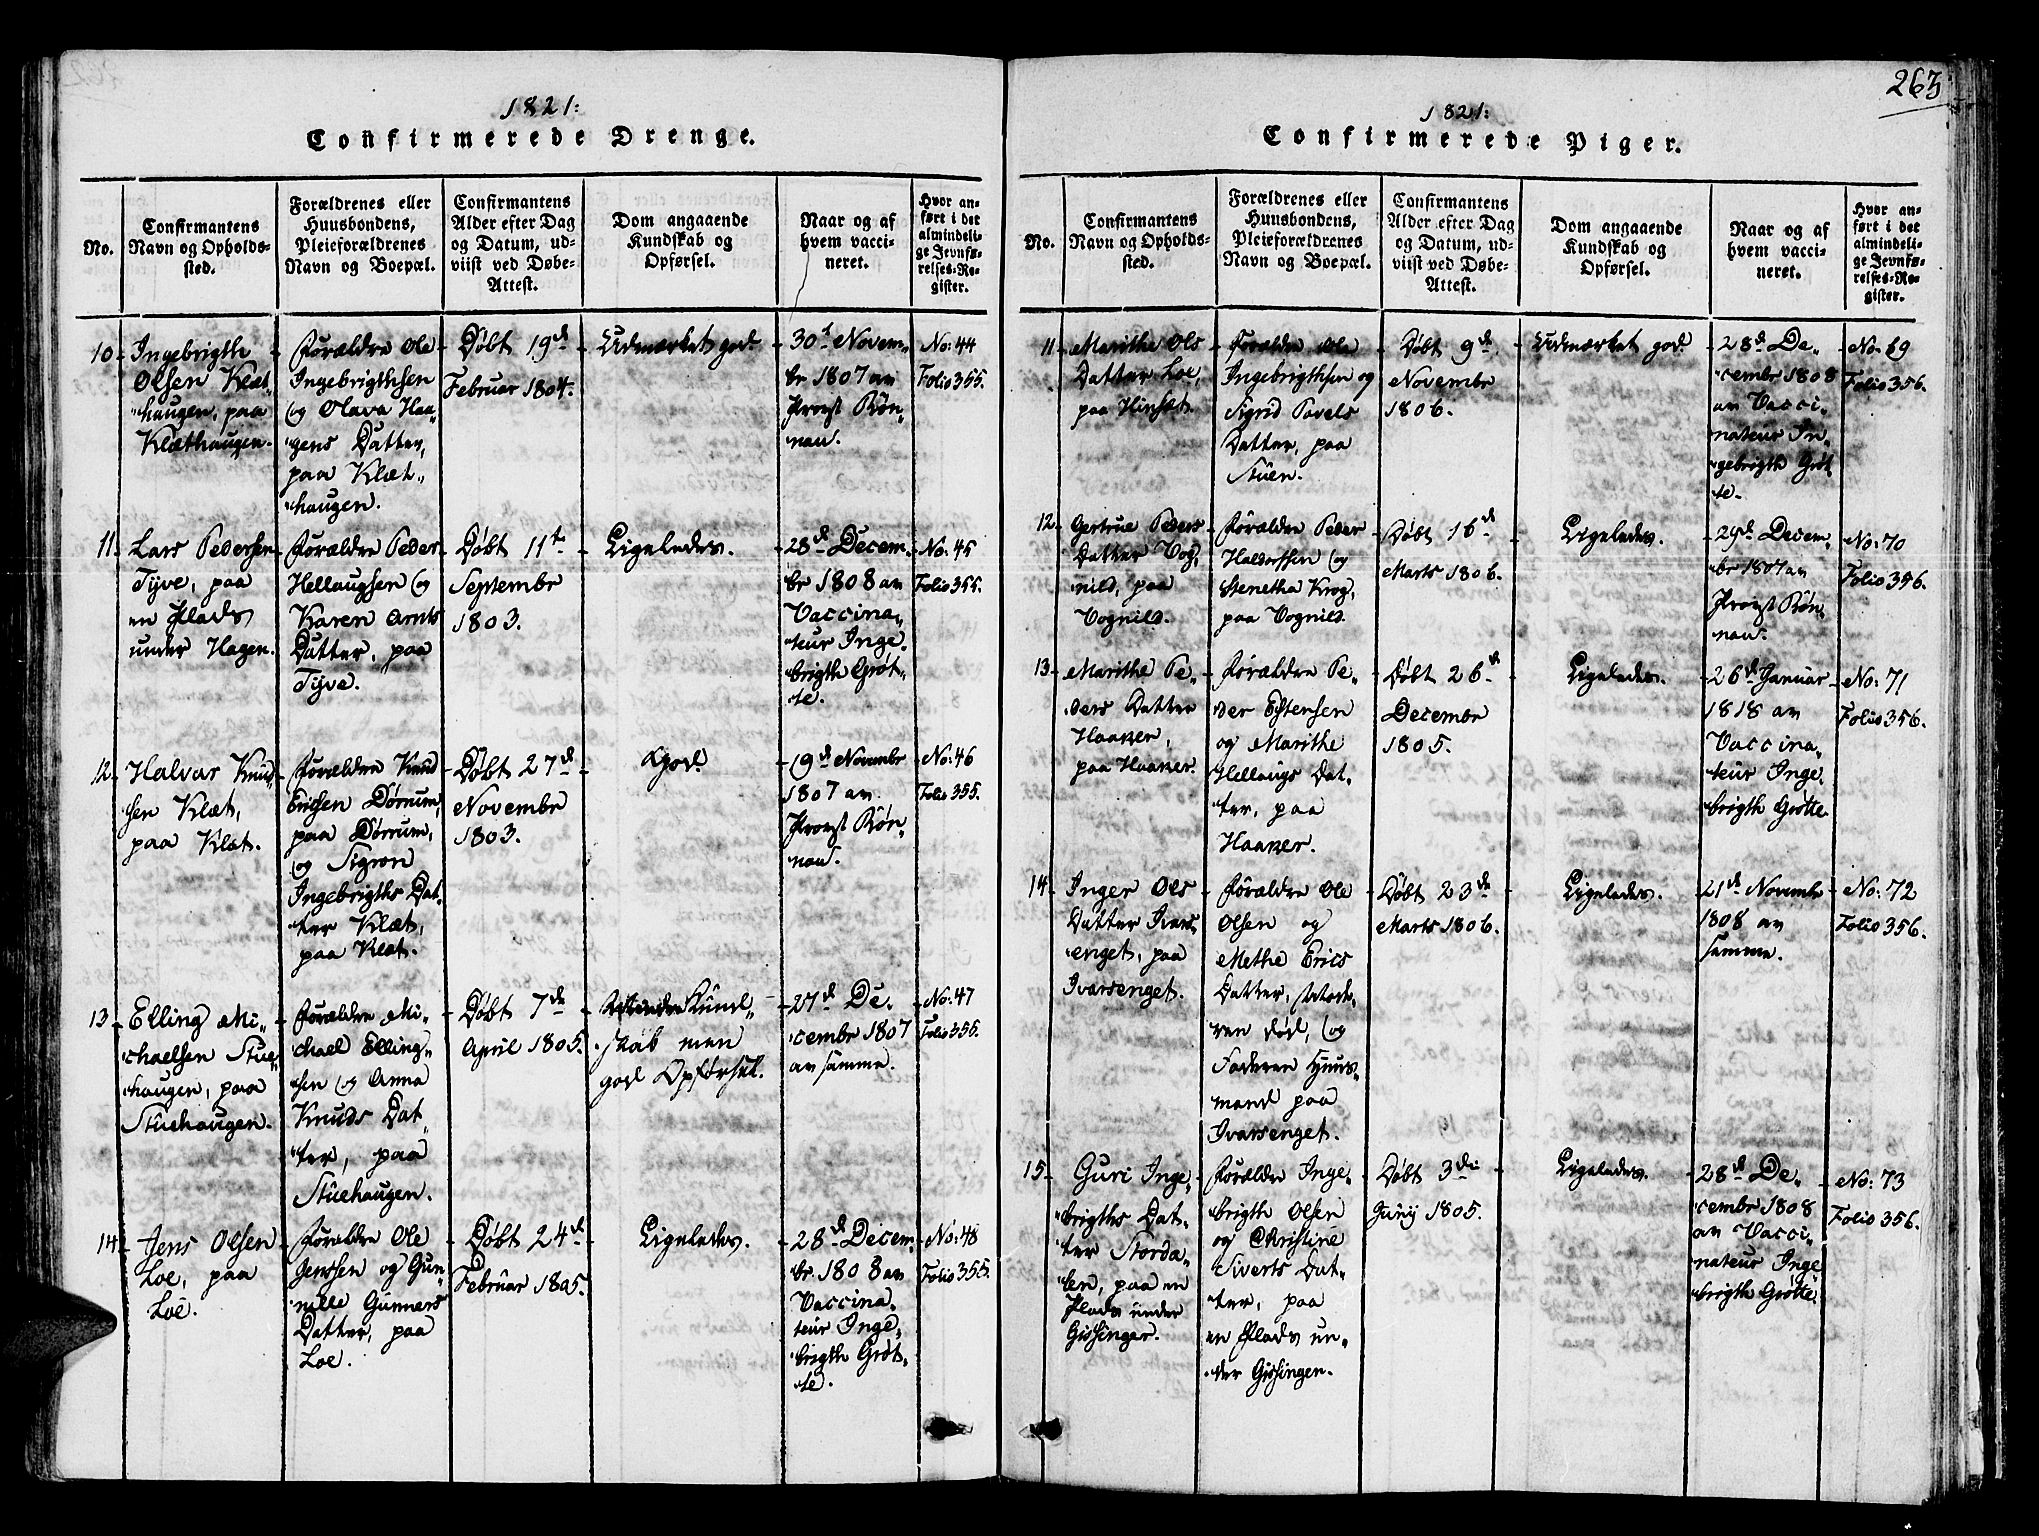 263
1821:
Confirmerede Drenge.
No.
Confirmantens
Navn og Opholds-
sted.
Forældrenes eller
Huusbondens,
Pleieforældrenes
Navn og Boepæl.
Confirmantens
Alder efter Dag
og Datum, ud-
viist ved Døbe-
Attest.
Dom angaaende
Kundskab og
Opførsel.
Naar og af
hvem vacci-
neret.
Hvor an-
ført i det
almindeli-
ge Jevnfø-
relses-Re-
gister.
10
Ingebrigth
Olsen Klæt-
haugen, paa
Klæthaugen.
Forældre Ole
Ingebrigthsen
og Olava Haa-
gens Datter,
paa Klæt-
haugen.
Døbt 19de
Februar 1804.
Udmærket god.
30t Novem-
br 1807 av
Provst Røn-
nau.
No: 44
Folio 355.
11
Lars Pedersen
Tyve, paa
en Plads
under Hagen.
Forældre Peder
Hellaugsen og
Karen Arnts
Datter, paa
Tyve.
Døbt 11te
Septembr
1803.
Ligeledes.
28d Decem-
br 1808 av
Vaccina-
teur Inge-
brigth Grøt-
te.
No: 45
Folio 355.
12
Halvar Knud-
sen Klæt,
paa Klæt.
Forældre Knud
Ericsen Dørrum,
paa Dørrum,
og Sigron
Ingebrigths Dat-
ter Klæt,
paa Klæt.
Døbt 27d
Novembr
1803.
God.
19d Novembr
1807 av
Provst Røn-
nau.
No: 46
Folio 355.
13
Elling Mi-
chaelsen Stue-
haugen, paa
Stuehaugen.
Forældre Mi-
chael Elling-
sen og Anna
Knuds Dat-
ter, paa
Stuehaugen.
Døbt 7de
April 1805.
Kund-
skab men
god Opførsel.
27d De-
cembr 1807
av samme.
No: 47
Folio 355.
14
Jens Olsen
Loe, paa
Loe.
Forældre Ole
Jenssen og Gun-
nille Gunners
Datter, paa
Loe.
Døbt 24d
Februar 1805.
Ligeledes.
28d Decem-
br 1808 av
Vaccina-
teur Inge-
brigth Grøt-
te.
No: 48
Folio 355.
1821:
Confirmerede Piger.
No.
Confirmantens
Navn og Opholds-
sted.
Forældrenes eller
Huusbondens,
Pleieforældrenes
Navn og Boepæl.
Confirmantens
Alder efter Dag
og Datum, ud-
viist ved Døbe-
Attest.
Dom angaaende
Kundskab og
Opførsel.
Naar og af
hvem vacci-
neret.
Hvor an-
ført i det
almindeli-
ge Jevnfø-
relses-Re-
gister.
11
Marithe Ols
Datter Loe,
paa Hinsæt.
Forældre Ole
Ingebrigthsen og
Sigrid Povels
Datter, paa
Stuen.
Døbt 9de
Novembr
1806.
Udmærket god.
28d De-
cembr 1808
av Vacci-
nateur In-
gebrigth Grøt-
te.
No: 69
Folio 356.
12
Gertrue Peders
Datter Vog-
nild, paa
Vognild.
Forældre Peder
Haldorssen og
Stenetha Krog,
paa Vognild.
Døbt 16d
Marts 1806.
Ligeledes.
29d Decem-
br 1807 av
Provst Røn-
nau.
No: 70
Folio 356.
13
Marithe Pe-
ders Datter
Haaker,
paa Haaker.
Forældre Pe-
der Estensen
og Marithe
Hellaugs Dat-
ter, paa
Haaker.
Døbt 26d
Decembr
1805.
Ligeledes.
26d Januar
1818 av
Vaccina-
teur Inge-
brigth Grøtte.
No: 71
Folio 356.
14
Inger Ols
Datter Ivars-
enget, paa
Ivarsenget.
Forældre Ole
Olsen og
Methe Erics
Datter, Mod-
ren død, og
Faderen Huus-
mand paa
Ivarsenget.
Døbt 23de
Marts 1806.
Ligeledes.
21d Novembr
1808 av
samme.
No: 72
Folio 356.
15
Guri Inge-
brigths Dat-
ter Storda-
len, paa en
Plads under
Gissinger.
Forældre Inge-
brigth Olsen
og Christine
Siverts Dat-
ter, paa
en Plads un-
der Gissingen.
Døbt 3die
Junij 1805.
Ligeledes.
28d De-
cembr 1808
av Vacci-
nateur Inge-
brigth Grøtte.
No: 73
Folio 356.